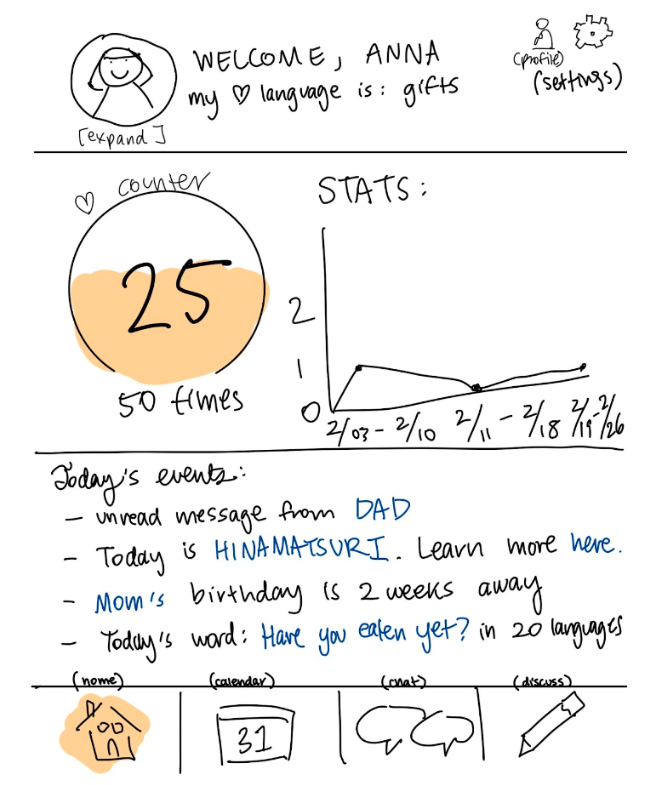 WELCOME, ANNA
my ♡ language is: gifts
(profile)
(settings)
[expand]
♡ counter
25
50 times
STATS:
2
1
0
2/03 - 2/10 2/11 - 2/18 2/19 - 2/26
Today's events:
- unread message from DAD
- Today is HINAMATSURI. Learn more here.
- Mom's birthday is 2 weeks away
- Today's word: Have you eaten yet? in 20 languages
(home) (calendar) (chat) (discuss)
31